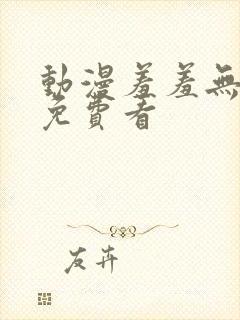 動漫羞羞無
免費看
友卉